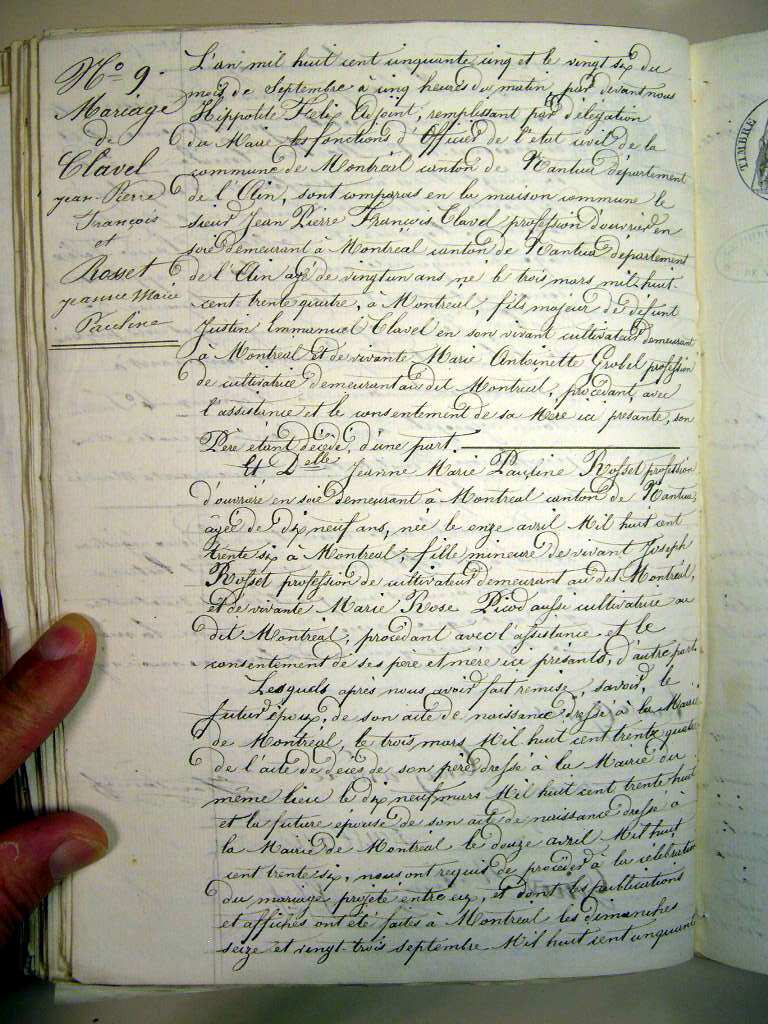 No 9.
Mariage
de
Clavel
jean-Pierre
François
et
Rosset
jeanne Marie
Pauline
L'an mil huit cent cinquante cinq et le vingt six du
mois de Septembre à cinq heures du matin, par devant nous
Hippolite Felix Adjoint, remplissant par délégation
du Maire les fonctions d'Officier de l'état civil de la
commune de Montréal canton de Nantua département
de l'Ain, sont comparus en la maison commune le
sieur Jean Pierre François Clavel profession d'ouvrier en
soie demeurant à Montréal canton de Nantua département
de l'Ain agé de vingt un ans né le trois mars mil huit
cent trente quatre, a Montreal, fils majeur de défunt
Justin Emmanuel Clavel en son vivant cultivateur demeurant
à Montreal et de vivante Marie Antoinette Grobel profession
de cultivatrice demeurant au dit Montreal, procédant avec
l'assistance et le consentement de sa Mère ici presante, son
Père étant décédé, d'une part.
Et Delle Jeanne Marie Pauline Rosset profession
d'ouvrière en soie demeurant à Montreal canton de Nantua,
âgée de dix neuf ans, née le onze avril Mil huit cent
trente six à Montreal, fille mineure de vivant Joseph
Rosset profession de cultivateur demeurant au dit Montréal,
et de vivante Marie Rose Picod aussi cultivatrice au
dit Montréal, procédant avec l'assistance et le
consentement de ses père et mère ici présants, d'autre part.
Lesquels après nous avoir fait remise, savoir, le
futur époux, de son acte de naissance dressé à la Mairie
de Montréal, le trois mars Mil huit cent trente quatre
de l'acte de décès de son père dressé à la Mairie du
même lieu le dix neuf mars Mil huit cent trente huit
et la future epouse de son acte de naissance dressé à
la Mairie de Montreal le douze avril Mil huit
cent trente six, nous ont requis de procéder à la célébration
du mariage projeté entre eux, et dont les publications
et affiches ont été faites à Montreal les dimanches
seize et vingt-trois septembre Mil huit cent cinquante
TIMBRE